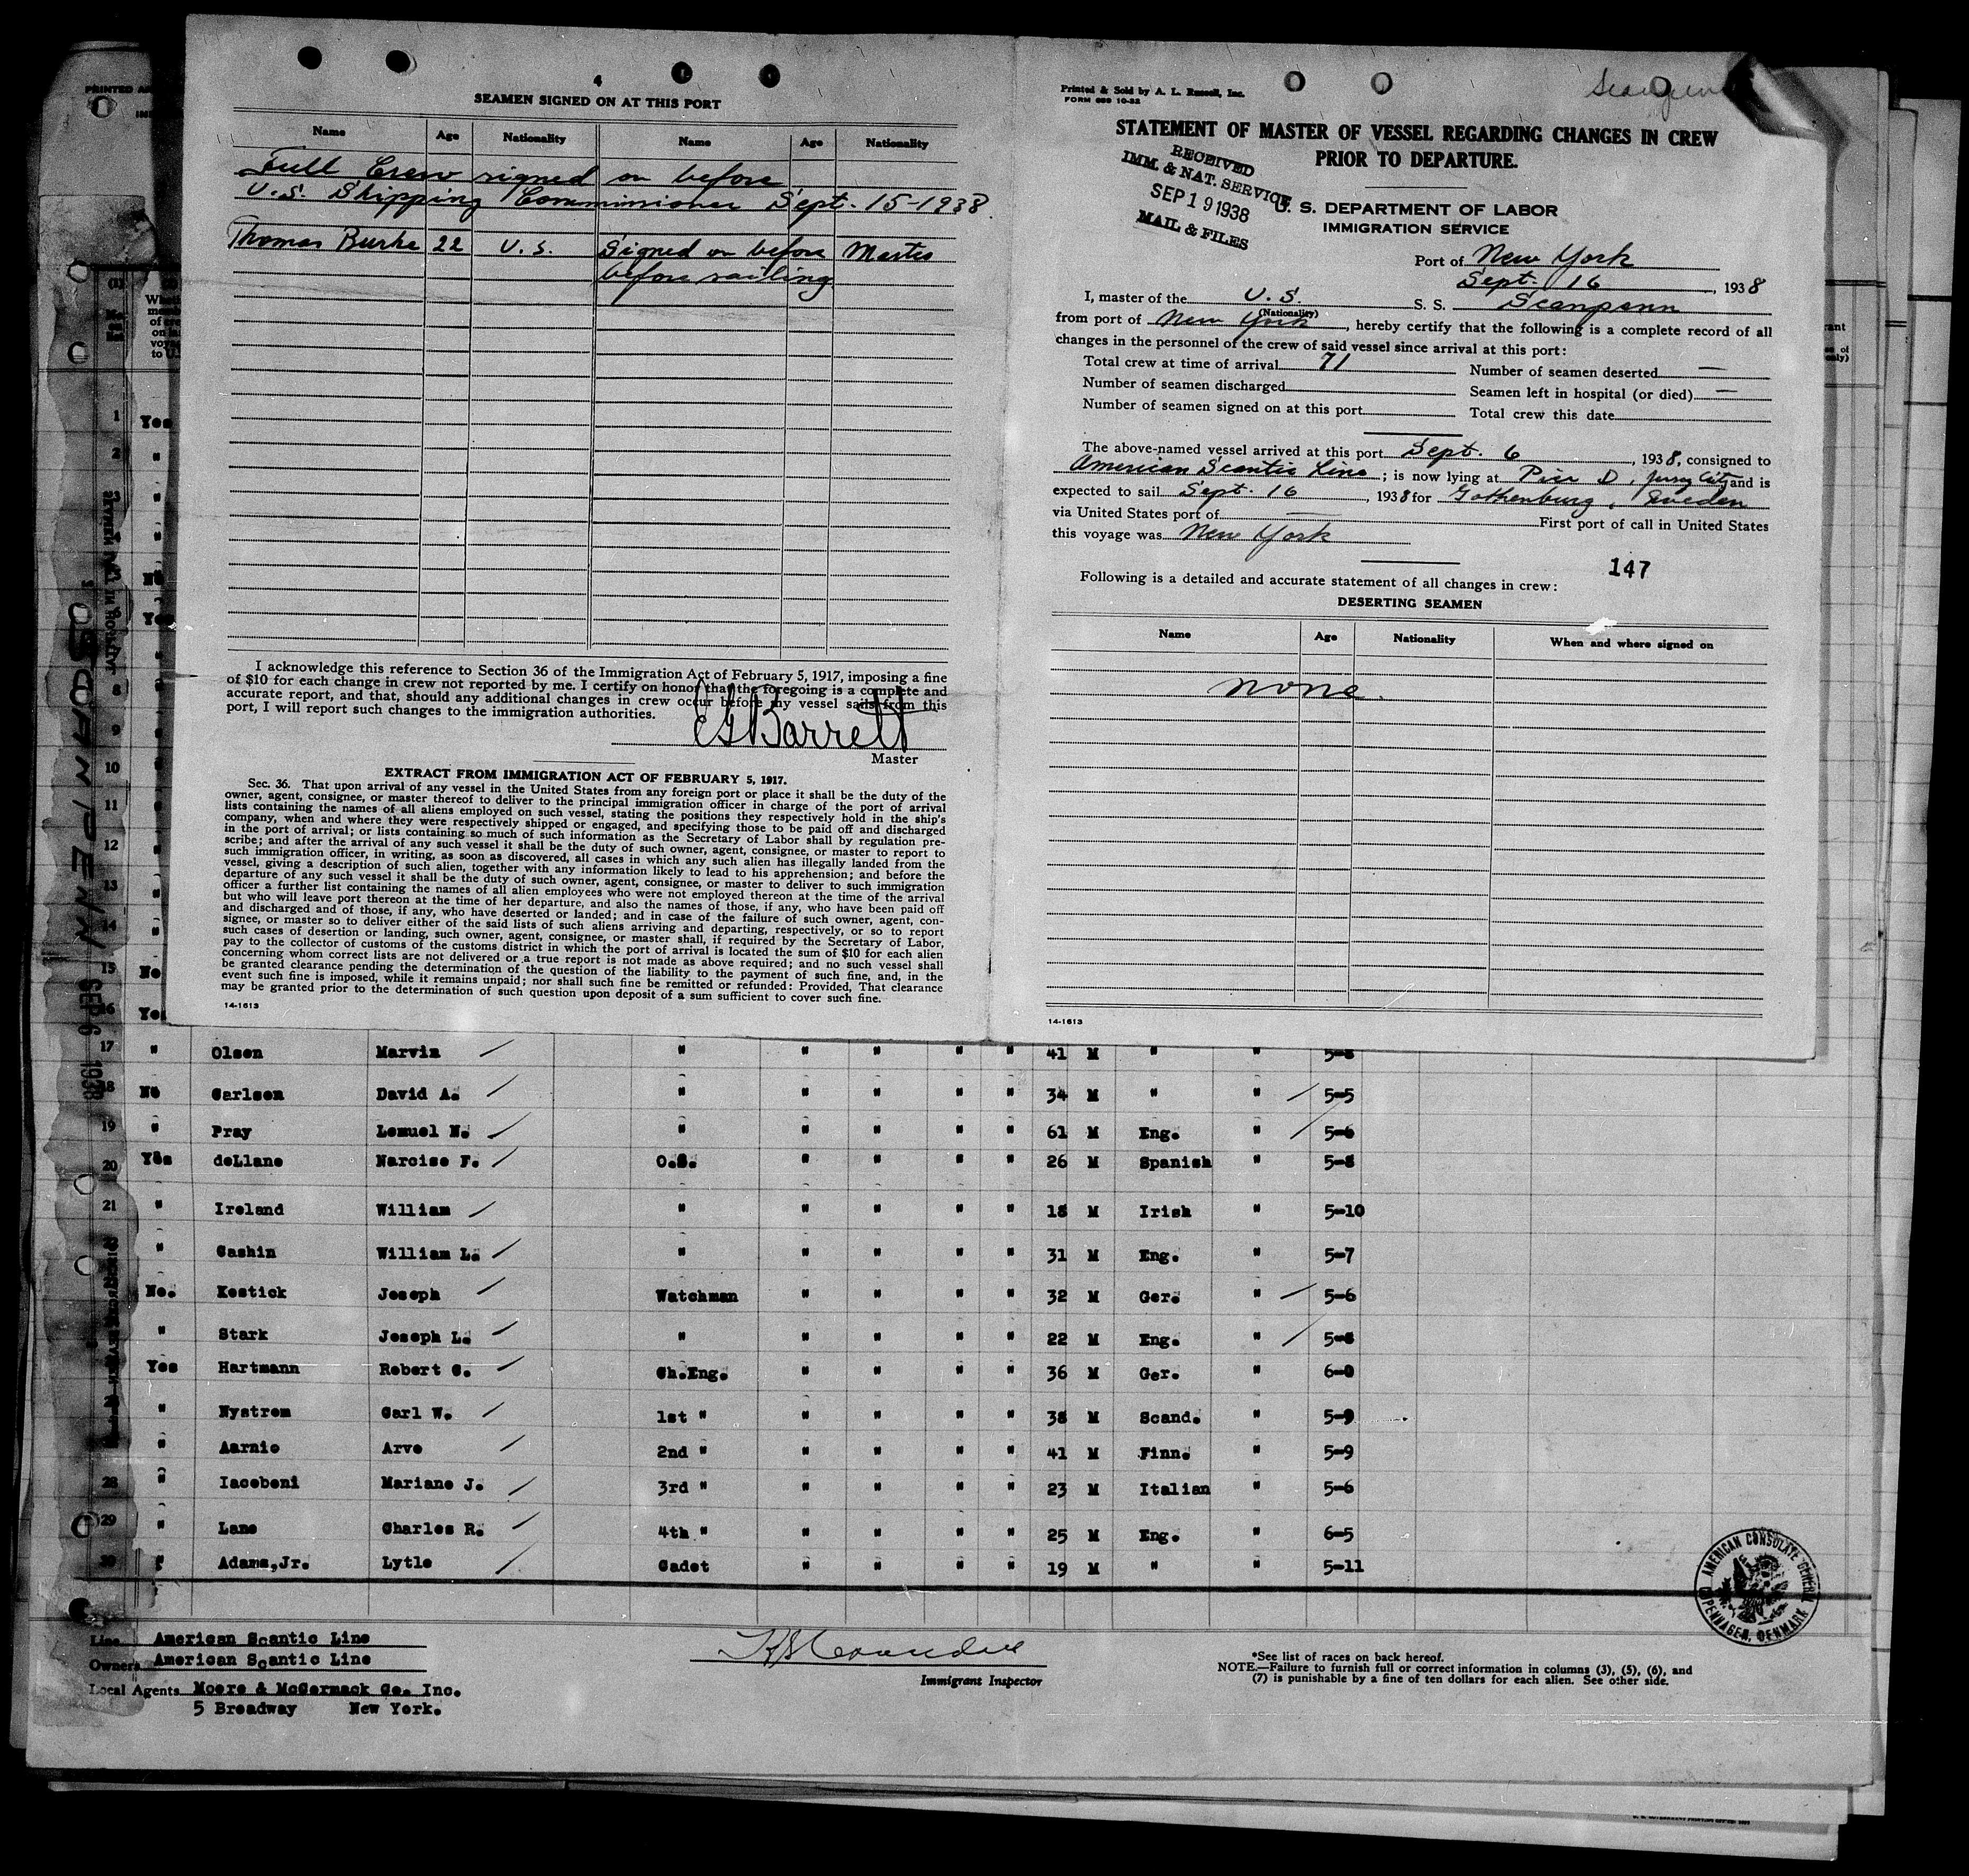 4
SEAMEN SIGNED ON AT THIS PORT
Name Age Nationality Name Age Nationality
Full Crew signed on before
U.S. Shipping Commissioner Sept. 15-1938.
Thomas Burke 22 U.S. Signed on before Master
before sailing
I acknowledge this reference to Section 36 of the Immigration Act of February 5, 1917, imposing a fine
of $10 for each change in crew not reported by me. I certify on honor that the foregoing is a complete and
accurate report, and that, should any additional changes in crew occur before my vessel sails from this
port, I will report such changes to the immigration authorities.
EG Barrett
Master
EXTRACT FROM IMMIGRATION ACT OF FEBRUARY 5, 1917.
Sec. 36. That upon arrival of any vessel in the United States from any foreign port or place it shall be the duty of the
owner, agent, consignee, or master thereof to deliver to the principal immigration officer in charge of the port of arrival
lists containing the names of all aliens employed on such vessel, stating the positions they respectively hold in the ship's
company, when and where they were respectively shipped or engaged, and specifying those to be paid off and discharged
in the port of arrival; or lists containing so much of such information as the Secretary of Labor shall by regulation pre-
scribe; and after the arrival of any such vessel it shall be the duty of such owner, agent, consignee, or master to report to
such immigration officer, in writing, as soon as discovered, all cases in which any such alien has illegally landed from the
vessel, giving a description of such alien, together with any information likely to lead to his apprehension; and before the
departure of any such vessel it shall be the duty of such owner, agent, consignee, or master to deliver to such immigration
officer a further list containing the names of all alien employees who were not employed thereon at the time of the arrival
but who will leave port thereon at the time of her departure, and also the names of those, if any, who have been paid off
and discharged and of those, if any, who have deserted or landed; and in case of the failure of such owner, agent, con-
signee, or master so to deliver either of the said lists of such aliens arriving and departing, respectively, or so to report
such cases of desertion or landing, such owner, agent, consignee, or master shall, if required by the Secretary of Labor,
pay to the collector of customs of the customs district in which the port of arrival is located the sum of $10 for each alien
concerning whom correct lists are not delivered or a true report is not made as above required; and no such vessel shall
be granted clearance pending the determination of the question of the liability to the payment of such fine, and, in the
event such fine is imposed, while it remains unpaid; nor shall such fine be remitted or refunded: Provided, That clearance
may be granted prior to the determination of such question upon deposit of a sum sufficient to cover such fine.
14-1613
Printed & Sold by A. L. Russell, Inc.
STATEMENT OF MASTER OF VESSEL REGARDING CHANGES IN CREW
PRIOR TO DEPARTURE.
RECEIVED
IMM. & NAT. SERVICE
SEP 19 1938
MAIL & FILES
U. S. DEPARTMENT OF LABOR
IMMIGRATION SERVICE
Port of New York
Sept. 16, 1938
I, master of the U.S. S. S. Scanpenn
(Nationality)
from port of New York, hereby certify that the following is a complete record of all
changes in the personnel of the crew of said vessel since arrival at this port:
Total crew at time of arrival 71 Number of seamen deserted —
Number of seamen discharged Seamen left in hospital (or died) —
Number of seamen signed on at this port Total crew this date
The above-named vessel arrived at this port Sept. 6, 1938, consigned to
American Scantic Line; is now lying at Pier D, Jersey City and is
expected to sail Sept. 16, 1938 for Gothenburg, Sweden
via United States port of — First port of call in United States
this voyage was New York
147
Following is a detailed and accurate statement of all changes in crew:
DESERTING SEAMEN
Name Age Nationality When and where signed on
none.
14-1613
SCANPENN SEP 6 1938
1 Yes
2 "
3 "
4 "
8
9
10
11
12
13
14
15 No
16 Yes
17 " Olsen Marvin " " " " " 41 M " " 5-8
18 No Carlson David A. " " " " " 34 M " " 5-5
19 " Pray Lemuel N. " " " " " 61 M Eng. " 5-6
20 Yes deLlano Narciso F. O.S. " " " " 26 M Spanish " 5-8
21 " Ireland William " " " " " 18 M Irish " 5-10
" Cashin William L. " " " " " 31 M Eng. " 5-7
No. Kostick Joseph Watchman " " " " 32 M Ger. " 5-6
" Stark Joseph L. " " " " " 22 M Eng. " 5-8
Yes Hartmann Robert C. Ch.Eng. " " " " 36 M Ger. " 6-0
" Nystrom Carl W. 1st " " " " " 38 M Scand. " 5-9
" Aarnio Arvo 2nd " " " " " 41 M Finn. " 5-9
28 " Iacoboni Mariano J. 3rd " " " " " 23 M Italian " 5-6
29 " Lane Charles R. 4th " " " " " 25 M Eng. " 6-5
30 " Adams,Jr. Lytle Cadet " " " " 19 M " " 5-11
AMERICAN CONSULATE GENERAL
COPENHAGEN, DENMARK
Line American Scantic Line
Owners American Scantic Line
Local Agents Moore & McCormack Co. Inc.
5 Broadway New York.
Immigrant Inspector
*See list of races on back hereof.
NOTE.—Failure to furnish full or correct information in columns (3), (5), (6), and
(7) is punishable by a fine of ten dollars for each alien. See other side.